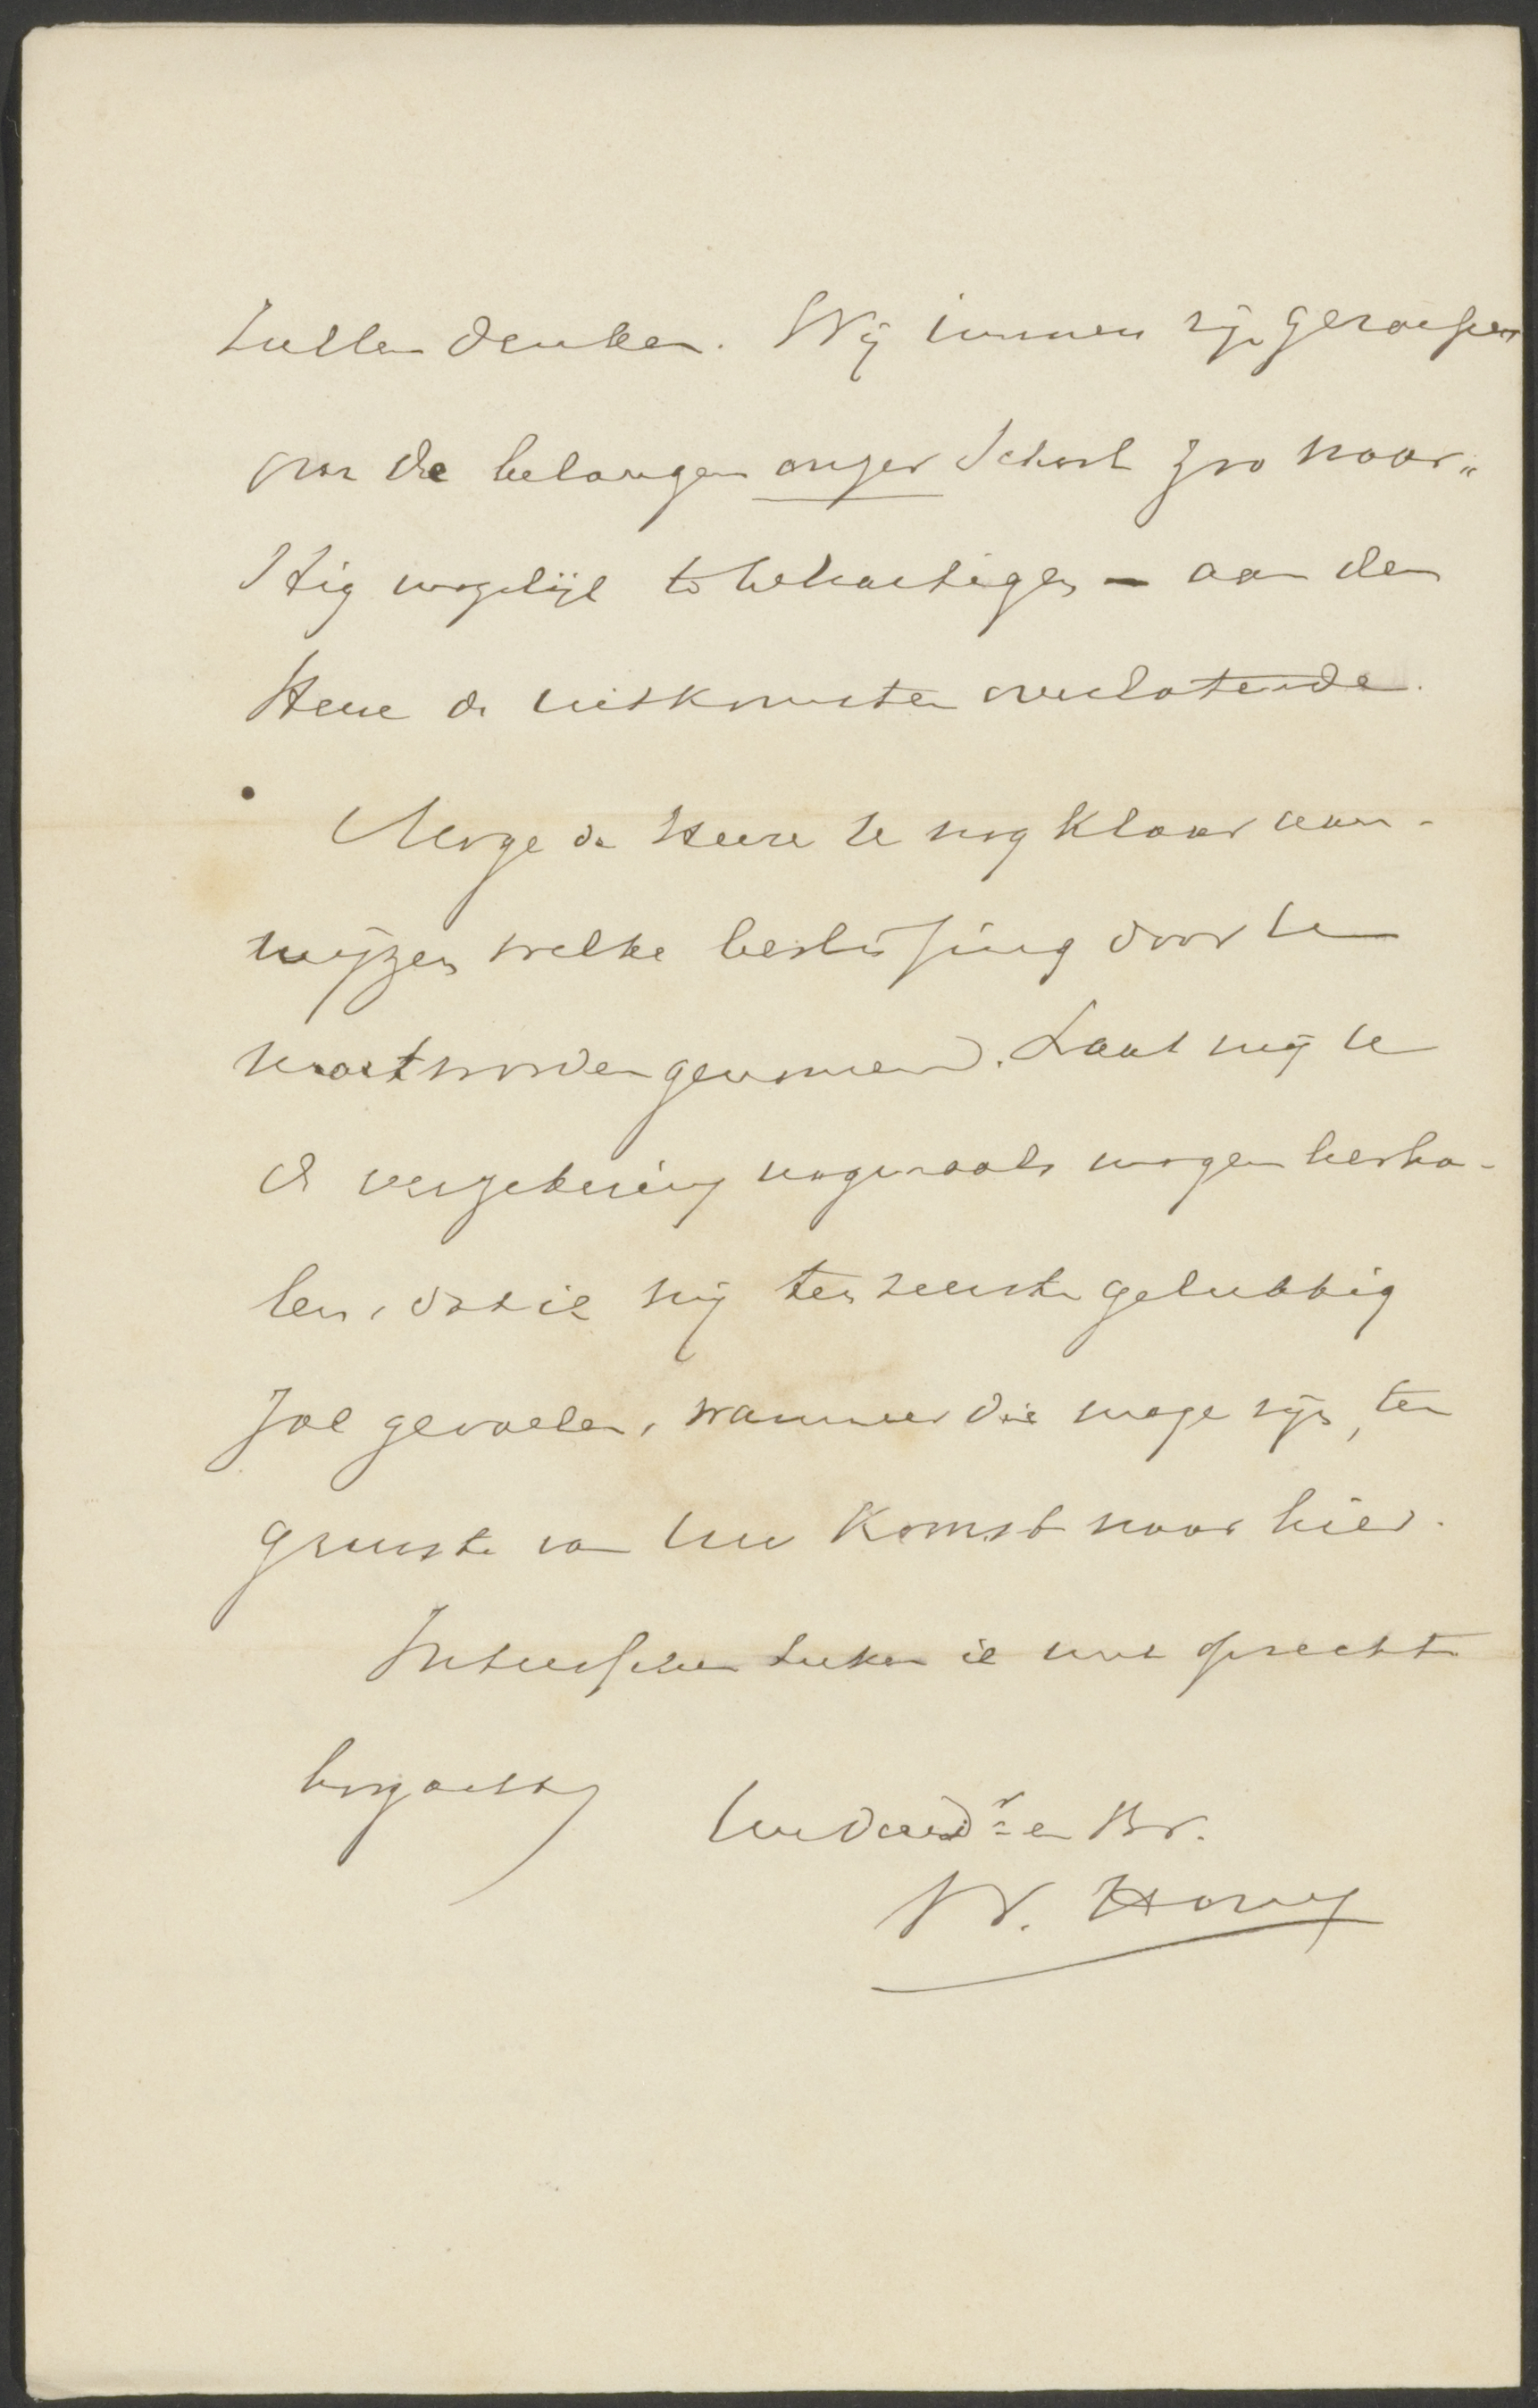 zullen denken. Wij immers zijn geroepen
om de belangen onzer School zoo naar„
stig mogelijk te behartigen – aan den
Heere de uitkomsten overlatende.
Moge de Heere U nog klaar aan-
wijzen welke beslissing door U
moet worden genomen. Laat mij U
de verzekering nogmaals mogen herha-
len, dat ik mij ten zeerste gelukkig
zal gevoelen, wanneer die moge zijn, ten
gunste van Uw komst naar hier.
Intusschen teeken ik met oprechte
hoogachtg
Uw dwdr en Br.
W. Hovy